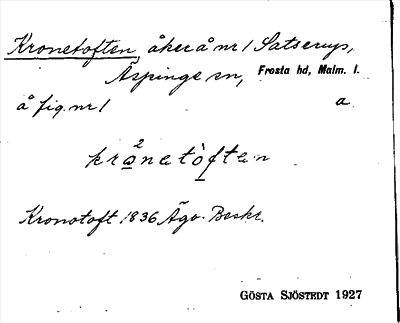 Kronetoften, åker å nr 1 Satserup,
Äspinge sn, Frosta hd, Malm. l.
å fig. nr 1 a
krånetòften
Kronotoft 1836 Ägo-Beskr.
GÖSTA SJÖSTEDT 1927